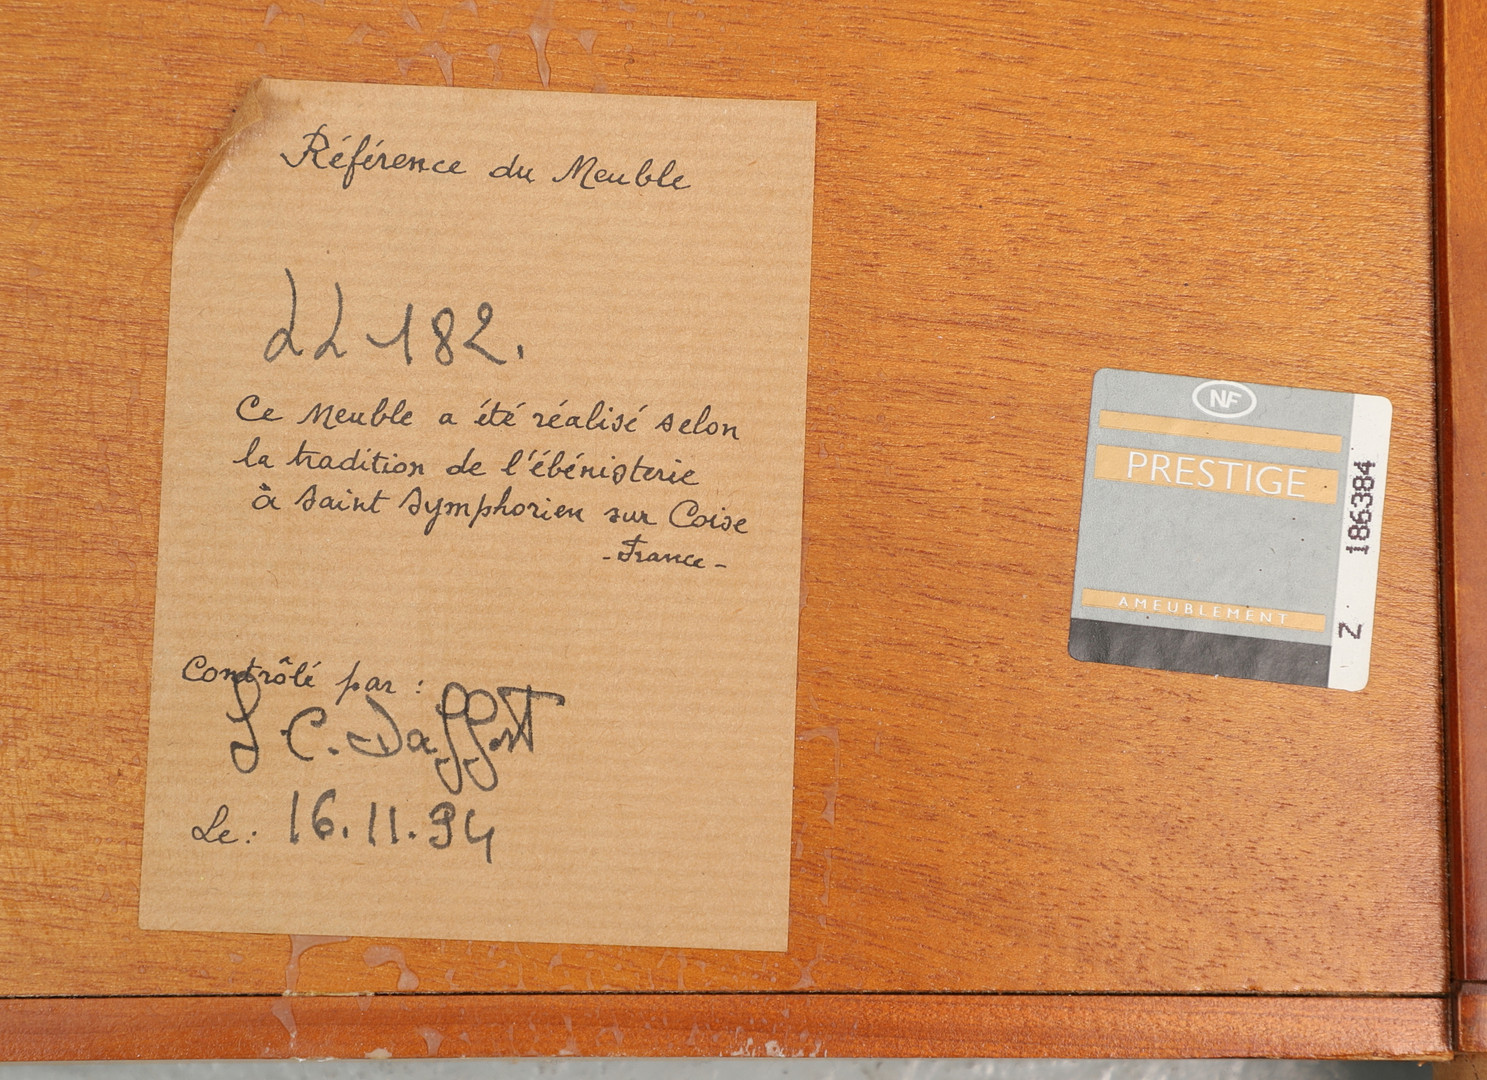 Référence du Meuble
22 182.
Ce Meuble a été réalisé selon
la tradition de l'ébénisterie
à saint symphorien sur Coise
- France -
Contrôlé par :
J C. Daffort
Le : 16.11.94
NF
PRESTIGE
AMEUBLEMENT
Z 186384